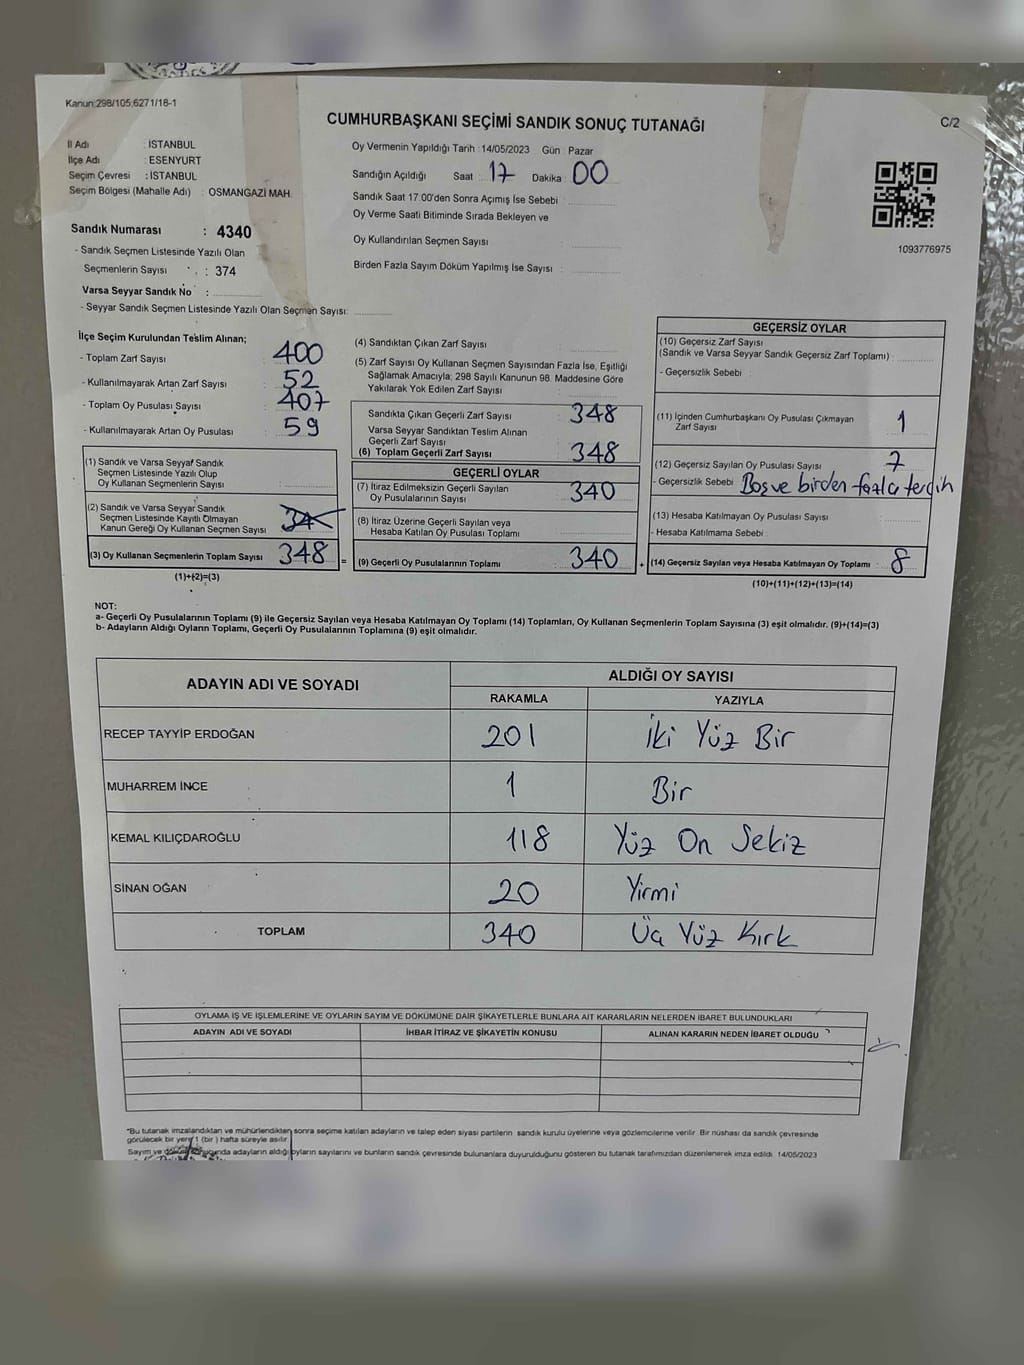 Kanun:298/105;6271/18-1
CUMHURBAŞKANI SEÇİMİ SANDIK SONUÇ TUTANAĞI
C/2
İl Adı : İSTANBUL
İlçe Adı : ESENYURT
Seçim Çevresi : İSTANBUL
Seçim Bölgesi (Mahalle Adı) : OSMANGAZİ MAH.
Oy Vermenin Yapıldığı Tarih : 14/05/2023 Gün : Pazar
Sandığın Açıldığı Saat : 17 Dakika : 00
Sandık Saat 17:00'den Sonra Açımış İse Sebebi :
Oy Verme Saati Bitiminde Sırada Bekleyen ve
Oy Kullandırılan Seçmen Sayısı :
Birden Fazla Sayım Döküm Yapılmış İse Sayısı :
1093776975
Sandık Numarası : 4340
- Sandık Seçmen Listesinde Yazılı Olan
Seçmenlerin Sayısı : 374
Varsa Seyyar Sandık No :
- Seyyar Sandık Seçmen Listesinde Yazılı Olan Seçmen Sayısı:
İlçe Seçim Kurulundan Teslim Alınan;
- Toplam Zarf Sayısı : 400
- Kullanılmayarak Artan Zarf Sayısı : 52
- Toplam Oy Pusulası Sayısı : 407
- Kullanılmayarak Artan Oy Pusulası : 59
(1) Sandık ve Varsa Seyyar Sandık
Seçmen Listesinde Yazılı Olup
Oy Kullanan Seçmenlerin Sayısı :
(2) Sandık ve Varsa Seyyar Sandık
Seçmen Listesinde Kayıtlı Olmayan
Kanun Gereği Oy Kullanan Seçmen Sayısı :
(3) Oy Kullanan Seçmenlerin Toplam Sayısı : 348 =
(1)+(2)=(3)
(4) Sandıktan Çıkan Zarf Sayısı :
(5) Zarf Sayısı Oy Kullanan Seçmen Sayısından Fazla İse, Eşitliği
Sağlamak Amacıyla; 298 Sayılı Kanunun 98. Maddesine Göre
Yakılarak Yok Edilen Zarf Sayısı :
Sandıkta Çıkan Geçerli Zarf Sayısı : 348
Varsa Seyyar Sandıktan Teslim Alınan
Geçerli Zarf Sayısı :
(6) Toplam Geçerli Zarf Sayısı : 348
GEÇERLİ OYLAR
(7) İtiraz Edilmeksizin Geçerli Sayılan
Oy Pusulalarının Sayısı : 340
(8) İtiraz Üzerine Geçerli Sayılan veya
Hesaba Katılan Oy Pusulası Toplamı :
(9) Geçerli Oy Pusulalarının Toplamı : 340 +
GEÇERSİZ OYLAR
(10) Geçersiz Zarf Sayısı
(Sandık ve Varsa Seyyar Sandık Geçersiz Zarf Toplamı) :
- Geçersizlik Sebebi :
(11) İçinden Cumhurbaşkanı Oy Pusulası Çıkmayan
Zarf Sayısı : 1
(12) Geçersiz Sayılan Oy Pusulası Sayısı : 7
- Geçersizlik Sebebi : Boş ve birden fazla tercih
(13) Hesaba Katılmayan Oy Pusulası Sayısı :
- Hesaba Katılmama Sebebi :
(14) Geçersiz Sayılan veya Hesaba Katılmayan Oy Toplamı : 8
(10)+(11)+(12)+(13)=(14)
NOT:
a- Geçerli Oy Pusulalarının Toplamı (9) ile Geçersiz Sayılan veya Hesaba Katılmayan Oy Toplamı (14) Toplamları, Oy Kullanan Seçmenlerin Toplam Sayısına (3) eşit olmalıdır. (9)+(14)=(3)
b- Adayların Aldığı Oyların Toplamı, Geçerli Oy Pusulalarının Toplamına (9) eşit olmalıdır.
ADAYIN ADI VE SOYADI
ALDIĞI OY SAYISI
RAKAMLA YAZIYLA
RECEP TAYYİP ERDOĞAN 201 İki Yüz Bir
MUHARREM İNCE 1 Bir
KEMAL KILIÇDAROĞLU 118 Yüz On Sekiz
SİNAN OĞAN 20 Yirmi
TOPLAM 340 Üç Yüz Kırk
OYLAMA İŞ VE İŞLEMLERİNE VE OYLARIN SAYIM VE DÖKÜMÜNE DAİR ŞİKAYETLERLE BUNLARA AİT KARARLARIN NELERDEN İBARET BULUNDUKLARI
ADAYIN ADI VE SOYADI İHBAR İTİRAZ VE ŞİKAYETİN KONUSU ALINAN KARARIN NEDEN İBARET OLDUĞU
*Bu tutanak imzalandıktan ve mühürlendikten sonra seçime katılan adayların ve talep eden siyasi partilerin sandık kurulu üyelerine veya gözlemcilerine verilir. Bir nüshası da sandık çevresinde
görülecek bir yere 1 (bir) hafta süreyle asılır.
Sayım ve adayların aldığı oyların sayılarını ve bunların sandık çevresinde bulunanlara duyurulduğunu gösteren bu tutanak tarafımızdan düzenlenerek imza edildi. 14/05/2023